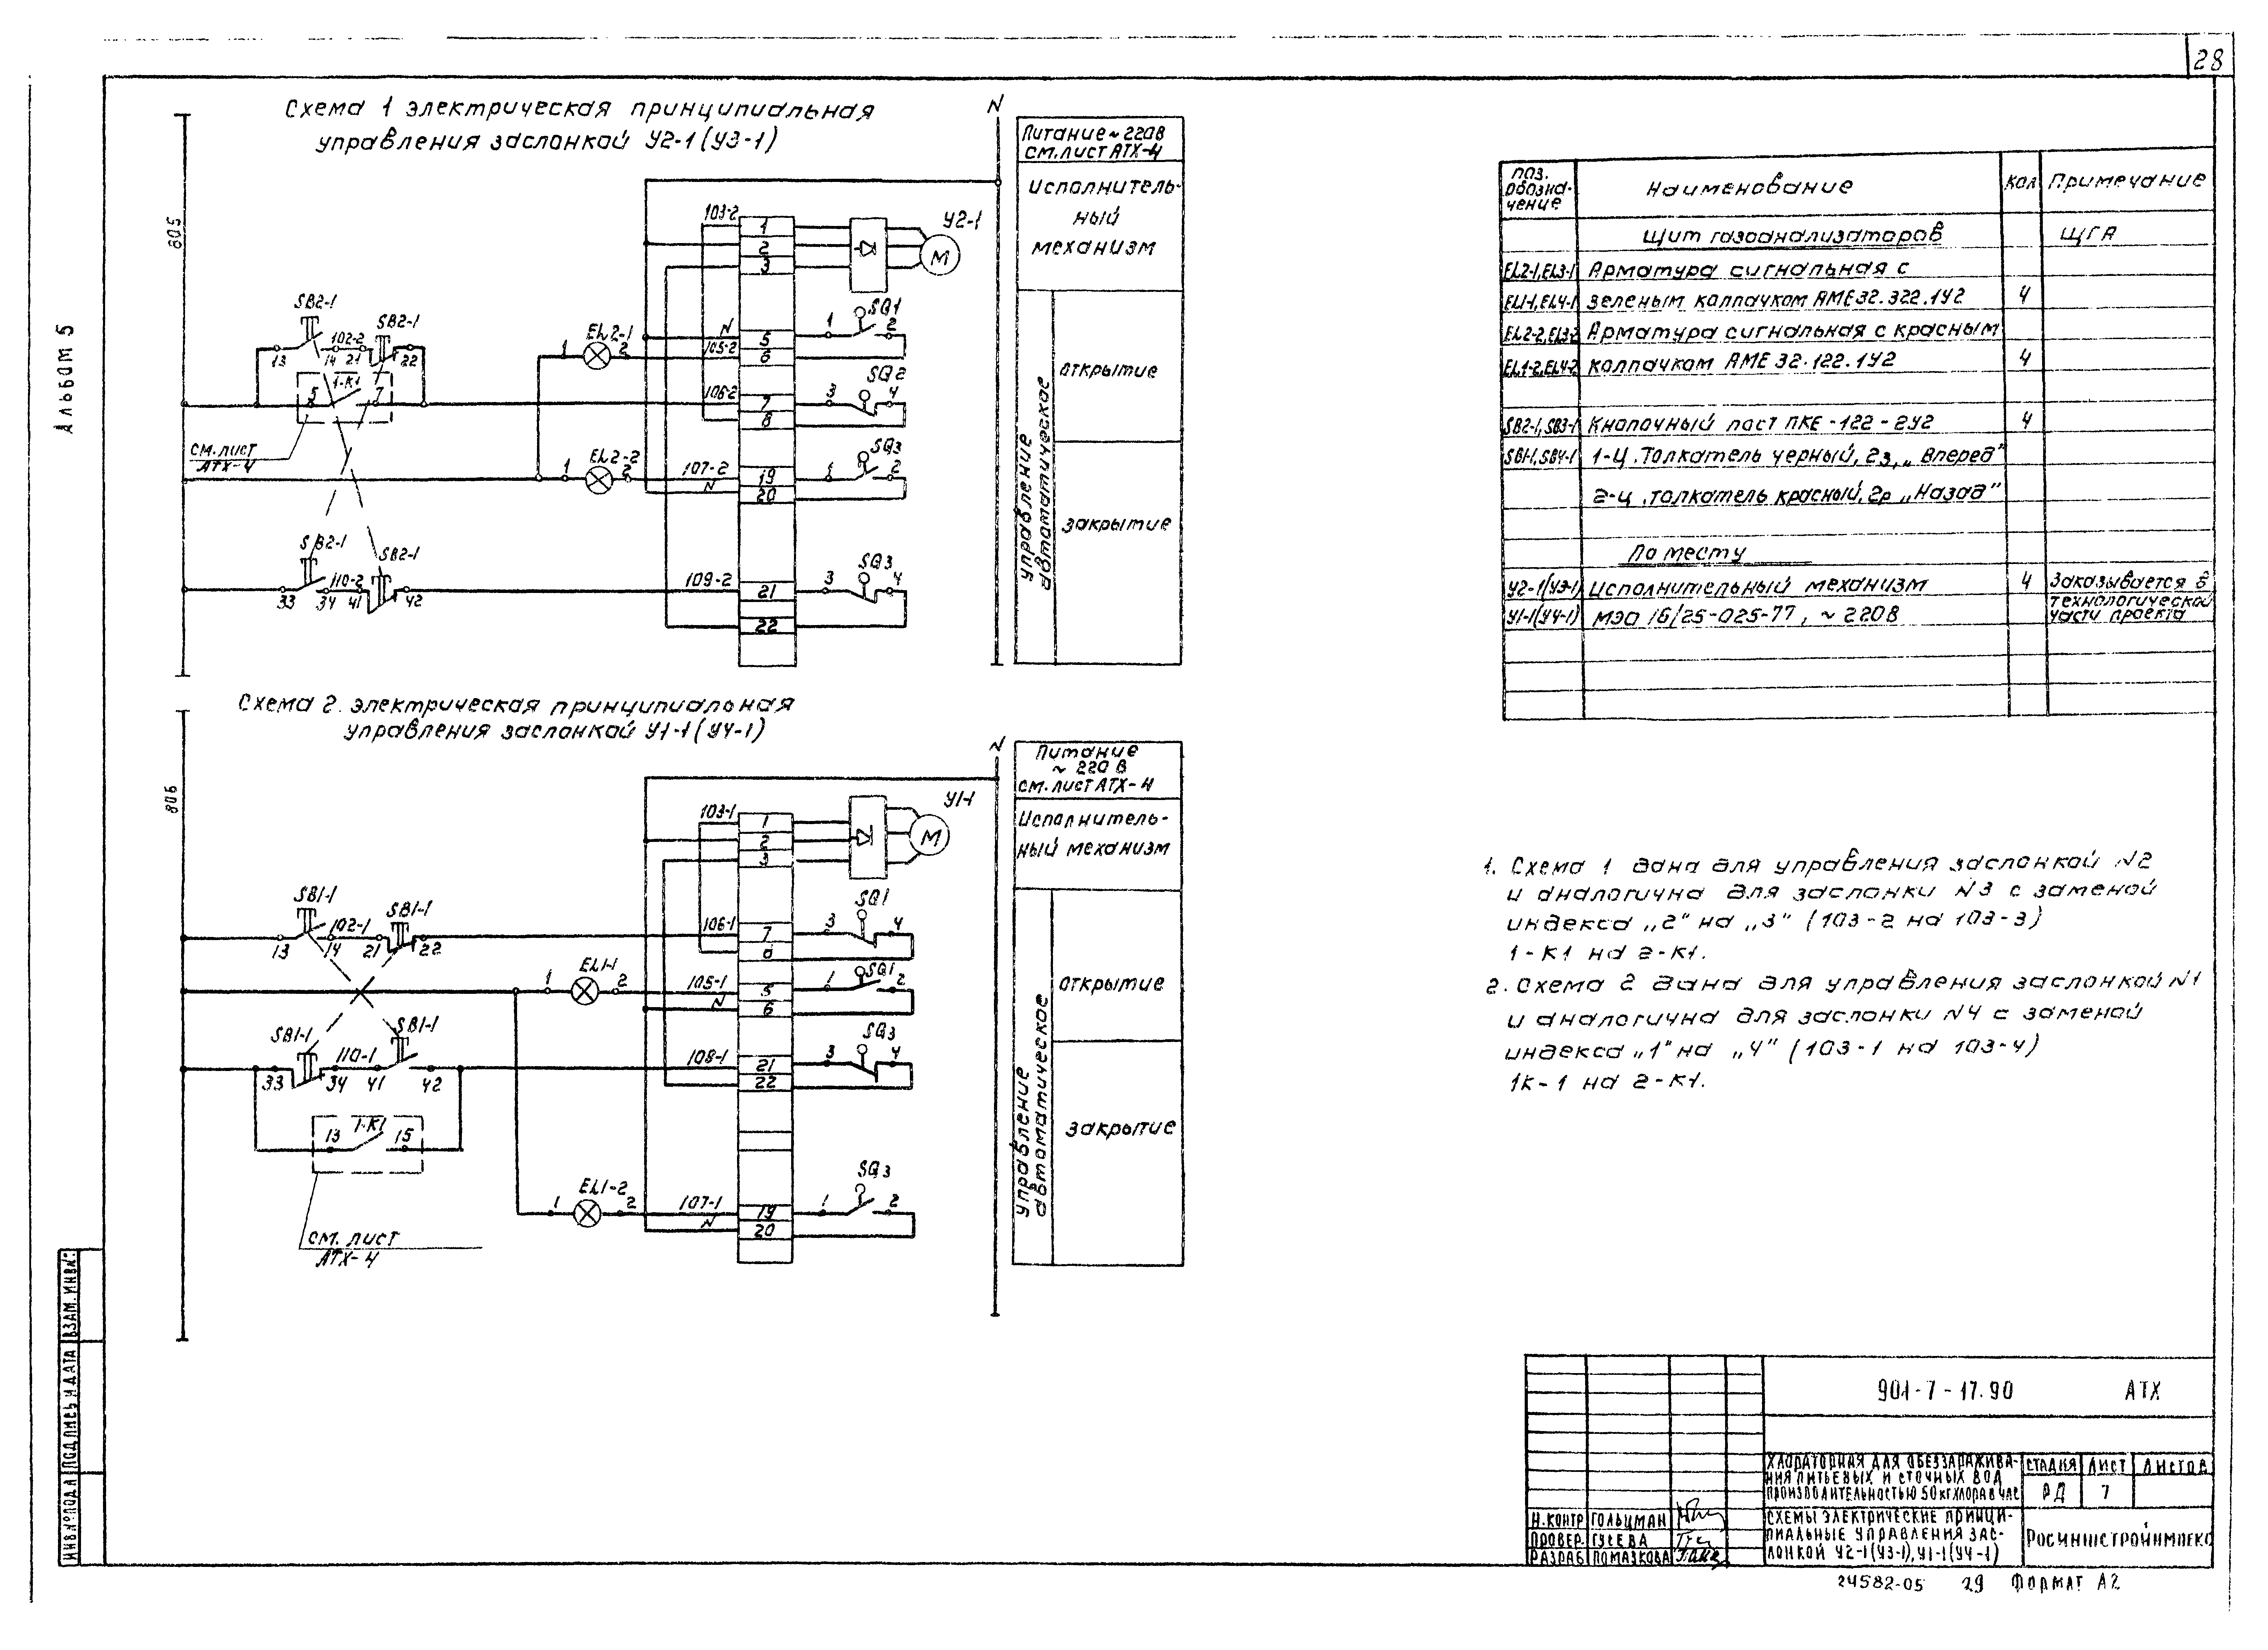 28
Альбом 5
Схема 1 электрическая принципиальная
управления заслонкой У2-1 (У3-1)
805
N
Питание ~ 220В
см. лист АТХ-4
Исполнитель-
ный
механизм
управление
автоматическое
открытие
закрытие
103-2
1
2
3
У2-1
М
SB2-1
13
14
102-2
21
SB2-1
22
1-К1
5
7
см. лист
АТХ-4
1
EL2-1
2
N
105-2
5
6
1
SQ1
2
106-2
7
8
3
SQ2
4
1
EL2-2
2
107-2
N
19
20
1
SQ3
2
SB2-1
33
34
110-2
41
SB2-1
42
109-2
21
22
3
SQ3
4
Схема 2. электрическая принципиальная
управления заслонкой У1-1 (У4-1)
806
N
Питание
~ 220 В
см. лист АТХ-4
Исполнитель-
ный механизм
управление
автоматическое
открытие
закрытие
103-1
1
2
3
У1-1
М
SB1-1
13
14
102-1
21
SB1-1
22
106-1
7
3
SQ1
4
1
EL1-1
2
105-1
N
5
6
1
SQ1
2
SB1-1
33
34
110-1
41
SB1-1
42
108-1
21
22
3
SQ3
4
13
1-К1
15
см. лист
АТХ-4
1
EL1-2
2
107-1
N
19
20
1
SQ3
2
поз. обозна-чение Наименование Кол Примечание
Щит газоанализаторов ЩГА
EL2-1,EL3-1 Арматура сигнальная с
EL1-1,EL4-1 зеленым колпачком АМЕ32.322.1У2 4
EL2-2,EL3-2 Арматура сигнальная с красным
EL1-2,EL4-2 колпачком АМЕ 32.122.1У2 4
SB2-1,SB3-1 Кнопочный пост ПКЕ-122-2У2 4
SB1-1,SB4-1 1-ц. толкатель черный, 2з, „Вперед"
2-ц. толкатель красный, 2р „Назад"
По месту
У2-1(У3-1) Исполнительный механизм 4 Заказывается в
технологической
У1-1(У4-1) МЭО 16/25-025-77, ~ 220В части проекта
1. Схема 1 дана для управления заслонкой N2
и аналогична для заслонки N3 с заменой
индекса „2" на „3" (103-2 на 103-3)
1-К1 на 2-К1.
2. Схема 2 дана для управления заслонкой N1
и аналогична для заслонки N4 с заменой
индекса „1" на „4" (103-1 на 103-4)
1К-1 на 2-К1.
901-7-17.90 АТХ
Хлораторная для обеззаражива-
ния питьевых и сточных вод
производительностью 50 кг хлора в час
Стадия Лист Листов
РД 7
Н.контр Гольцман
Провер. Гусева
Разраб Помазкова
Схемы электрические принци-
пиальные управления зас-
лонкой У2-1(У3-1), У1-1(У4-1)
Росинжстройимпекс
24582-05 29 Формат А2
Инв.№подл Подпись и дата Взам.инв.№